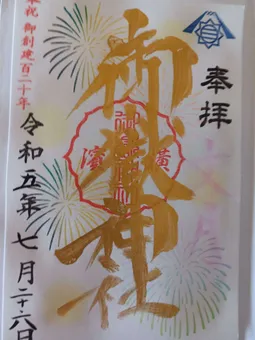 奉拝
御嶽神社
濱
令和五年 七月二十六日
奉祝 御創建百二十年